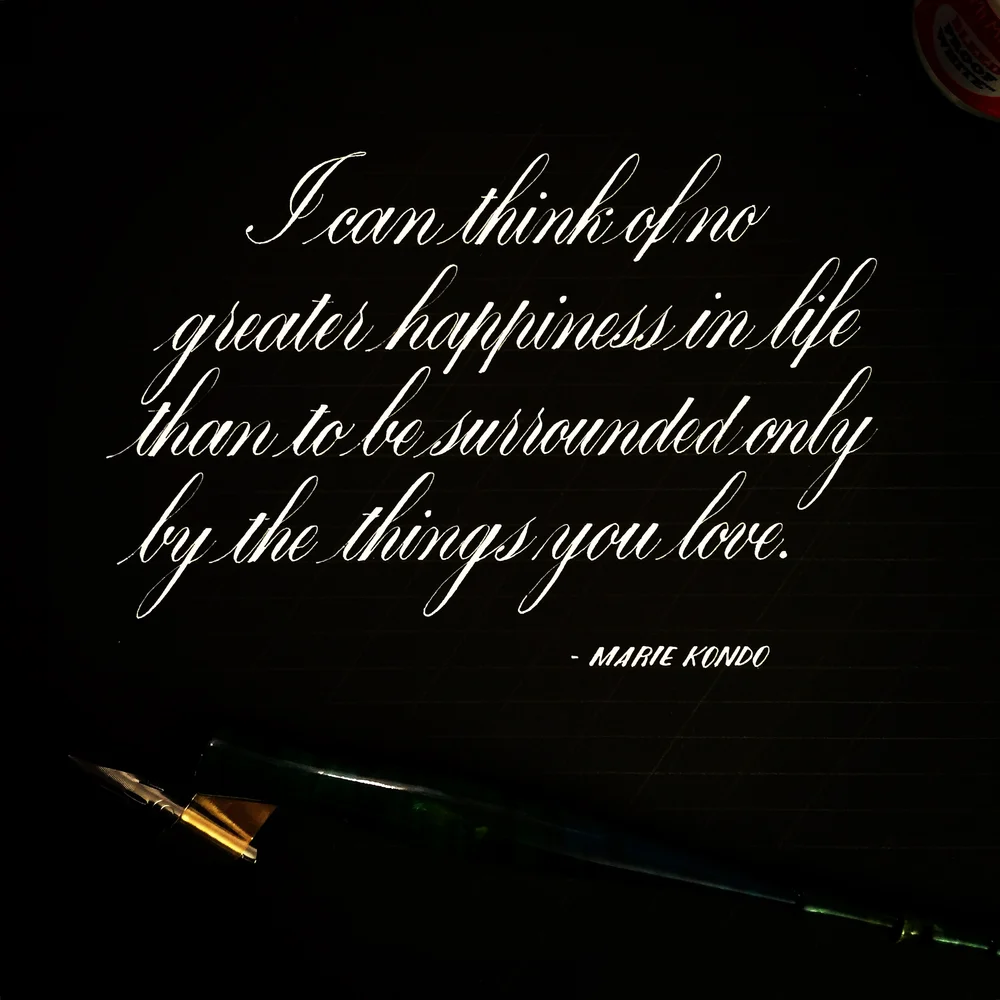 I can think of no
greater happiness in life
than to be surrounded only
by the things you love.
- MARIE KONDO